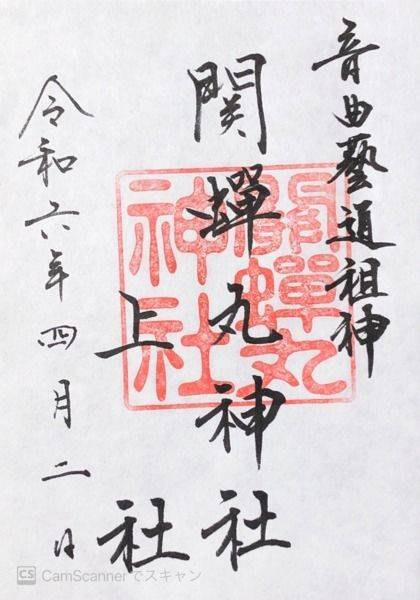 音曲藝道祖神
関蟬丸神社
上社
令和六年四月二日
関蟬丸神社
CS CamScannerでスキャン